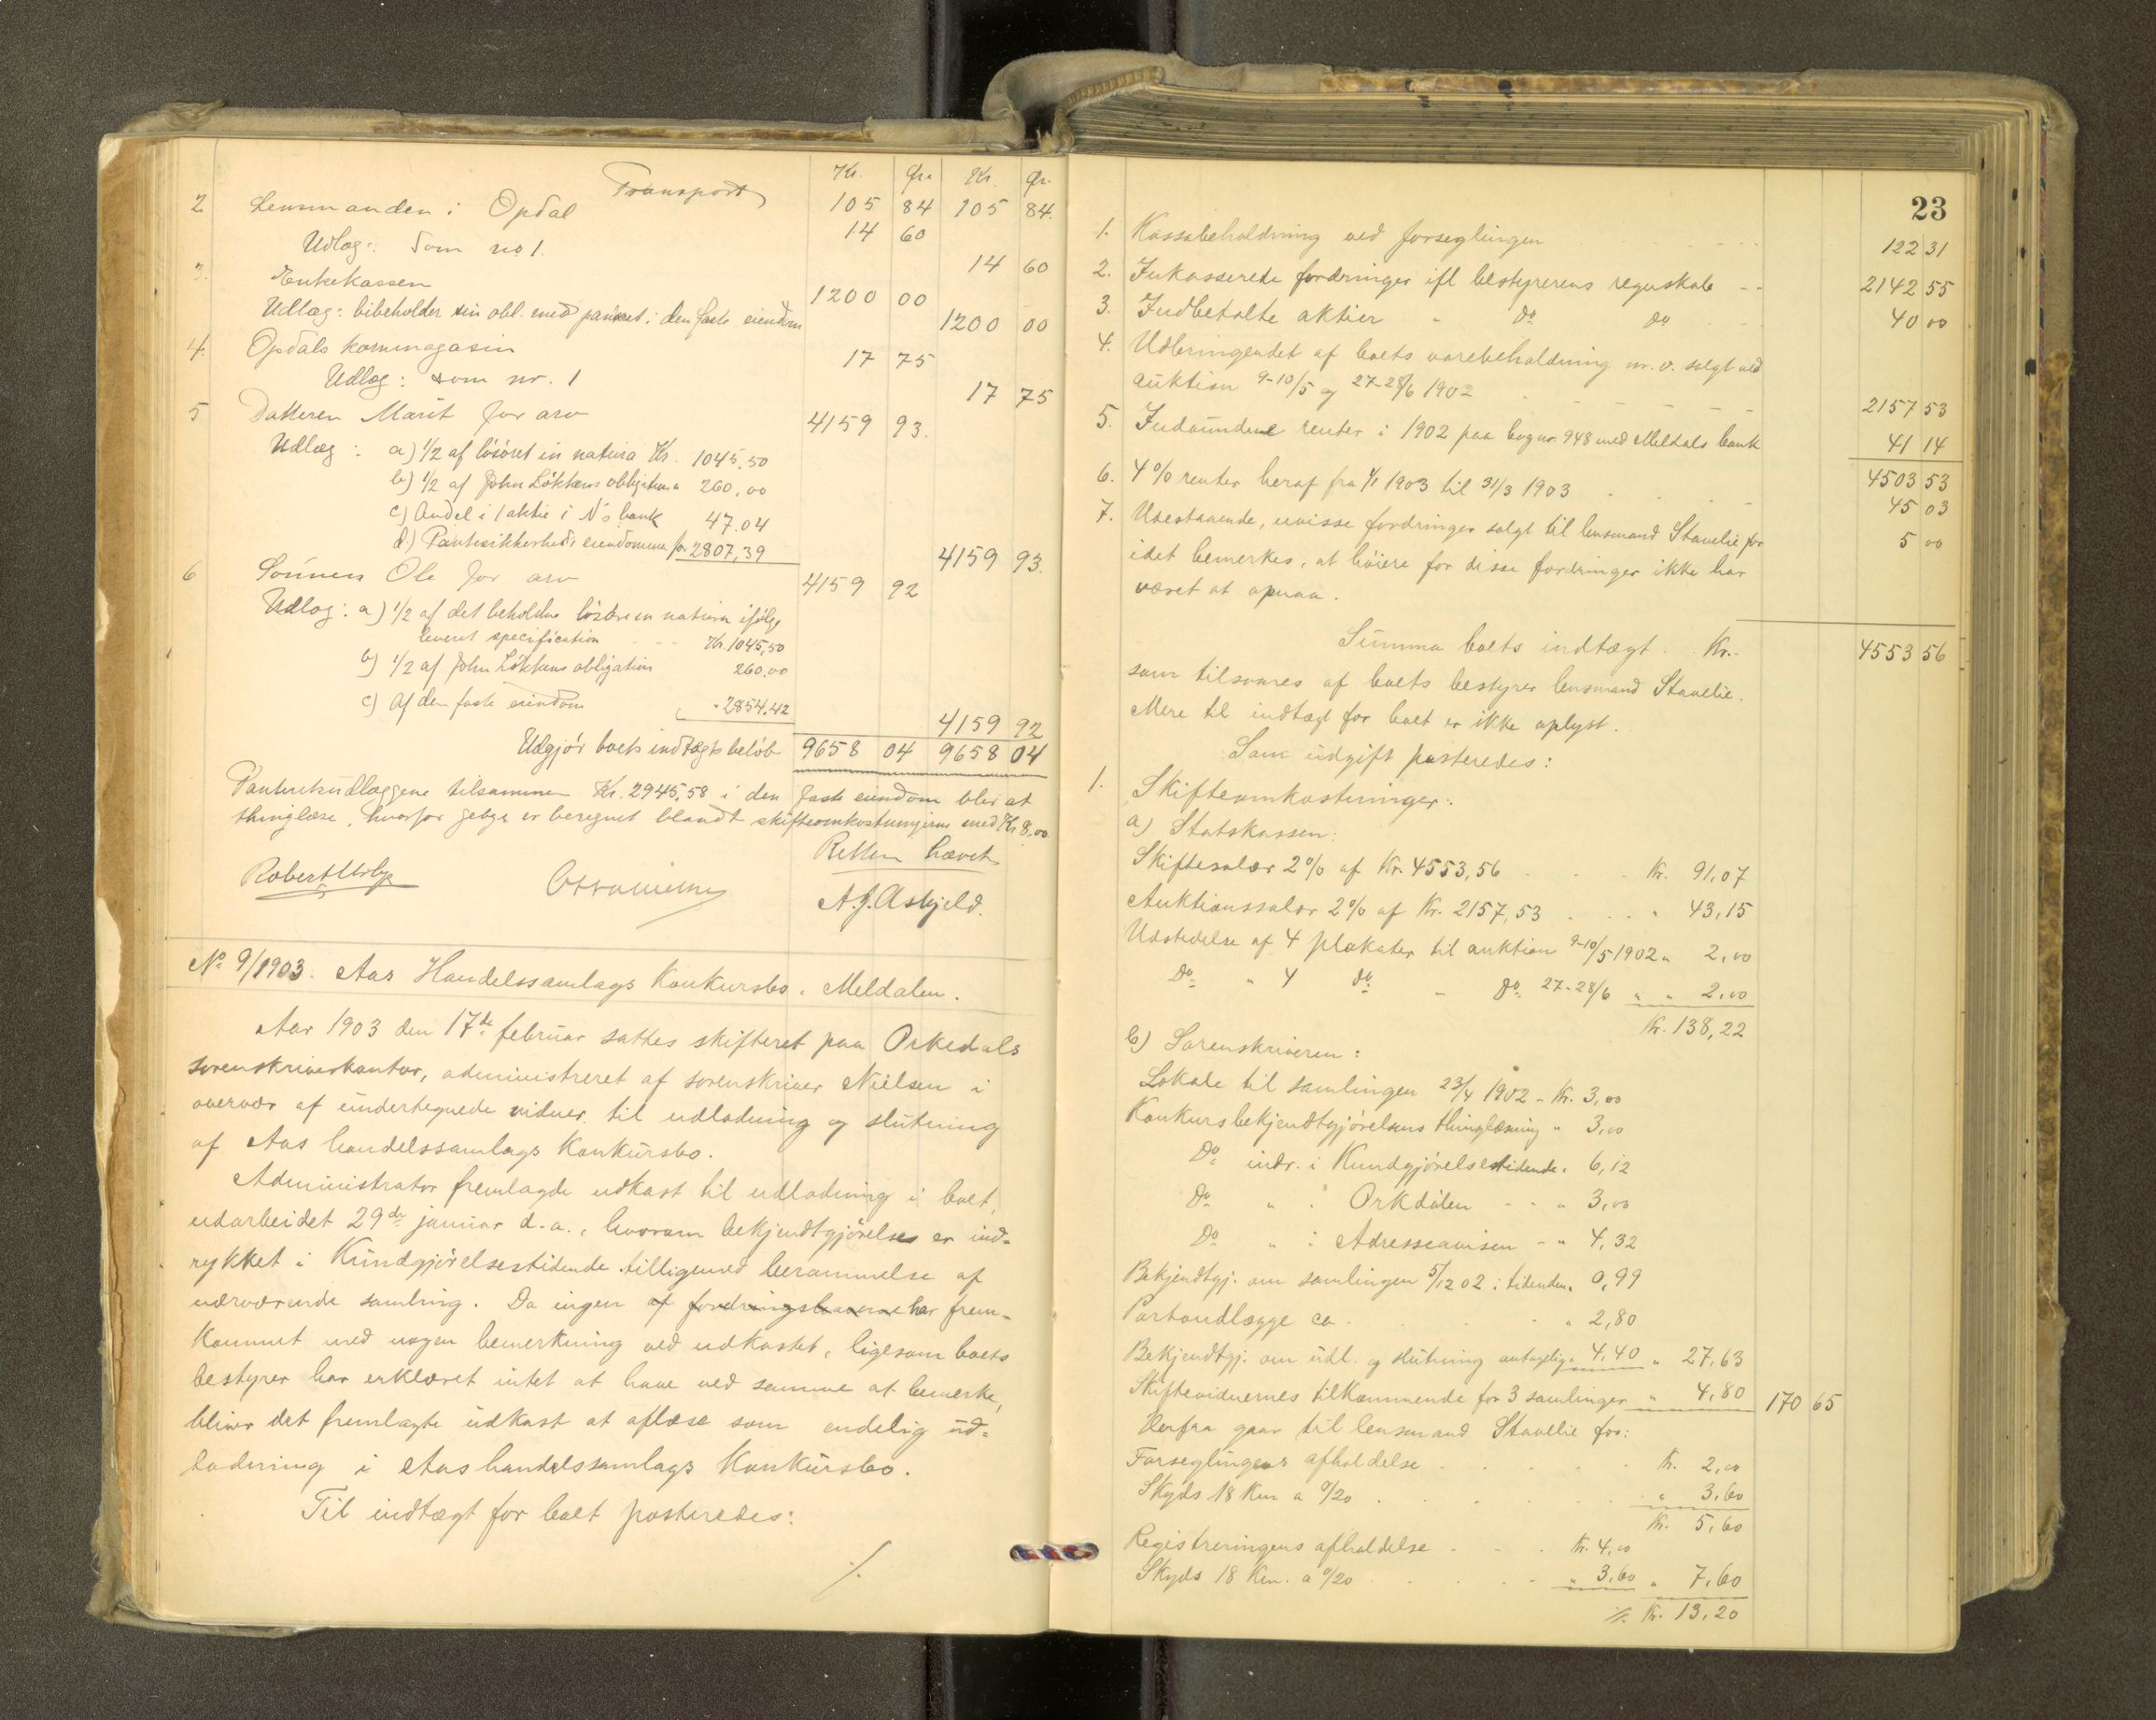 Kr. Ør. Kr. Ør.
Transport 105 84 105 84.
2 Lensmanden i Opdal 14 60
Udlæg: Som no 1. 14 60
3. Enkekassen 1200 00
Udlæg: bibeholder sin obl. med panteret i den faste eiendom 1200 00
4. Opdals kornmagasin 17 75
Udlæg: som nr. 1 17 75
5 Datteren Marit for arv 4159 93.
Udlæg: a) 1/2 af løsøret in natura Kr. 1045,50
b) 1/2 af John Løkkens obligation " 260,00
c) Andel i 1 aktie i N's bank 47.04
d.) Pantesikkerhed i eiendommen for 2807,39 4159 93.
6 Sønnen Ole for arv 4159 92
Udlæg: a) 1/2 af det beholdne løsøre in natura ifølge
leveret specification Kr. 1045,50
b) 1/2 af John Løkkens obligation 260.00
c) Af den faste eiendom " 2854.42 4159 92
Udgjør boets indtægtsbeløb 9658 04 9658 04
Panteretsudlæggene tilsammen Kr. 2945,58 i den faste eiendom blir at
thinglæse, hvorfor gebyr er beregnet blandt skifteomkostningerne med Kr 8.00
Retten hævet
A. J. Askjeld.
No 9/1903. Aas Handelssamlags Konkursbo, Meldalen.
Aar 1903 den 17de februar sattes skifteret paa Orkedals
sorenskriverkontor, administreret af sorenskriver Nielsen i
overvær af undertegnede vidner til udlodning og slutning
af Aas handelssamlags konkursbo.
Administrator fremlagde udkast til udlodning i boet,
udarbeidet 29de januar d.a., hvorom bekjendtgjørelse er ind-
rykket i Kundgjørelsestidende tilligemed berammelse af
nærværende samling. Da ingen af fordringshaverne har frem-
kommet med nogen bemerkning ved udkastet, ligesom boets
bestyrer har erklæret intet at have ved samme at bemerke,
bliver det fremlagte udkast at aflæse som endelig ud-
lodning i Aas handelssamlags Konkursbo.
Til indtægt for boet posteredes:
./.
23
1. Kassabeholdning ved forseglingen 122 31
2. Inkasserede fordringer ifl bestyrerens regnskab 2142 55
3. Indbetalte aktier " do do 40 00
4. Udbringendet af boets varebeholdning m. v. solgt ved
auktion 9-10/5 og 27-28/6 1902 2157 53
5. Indvundne renter i 1902 paa bog nr 948 med Meldals bank 41 14
4503 53
6. 4% renter heraf fra 1/1 1903 til 31/3 1903 45 03
7. Udestaaende, uvisse fordringer solgt til lensmand Stavelie for 5 00
idet bemerkes, at høiere for disse fordringer ikke har
været at opnaa.
Summa boets indtægt. Kr. 4553 56
som tilsvares af boets bestyrer lensmand Stavelie.
Mere til indtægt for boet er ikke oplyst.
Som udgift posteredes:
1. Skifteomkostninger:
a) Statskassen:
Skiftesalær 2% af Kr. 4553,56 Kr. 91,07
Auktionssalær 2% af Kr. 2157,53 " 43,15
Udstedelse af 4 plakater til auktion 9-10/5 1902 " 2,00
Do " 4 do - do 27-28/6 " " 2,00
Kr. 138,22
b) Sorenskriveren:
Lokale til samlingen 23/4 1902 - Kr. 3,00
Konkursbekjendtgjørelsens thinglæsning " 3,00
Do indr. i Kundgjørelsestidende " 6,12
Do " " Orkdalen - - " 3,00
Do " i Adresseavisen - " 4,32
Bekjendtgj. om samlingen 5/12 02 i tidenden " 0,99
Portoudlægge ca. " 2,80
Bekjendtgj. om udl. og slutning antagelig " 4,40 " 27,63
Skiftevidnernes tilkommende for 3 samlinger " 4,80 170 65
Herfra gaar til lensmand Stavelie for:
Forseglingens afholdelse Kr. 2,00
Skyds 18 Km a 0/20 " 3,60
Kr. 5,60
Registreringens afholdelse Kr. 4,00
Skyds 18 Km. a 0/20 " 3,60 " 7,60
./. Kr. 13,20